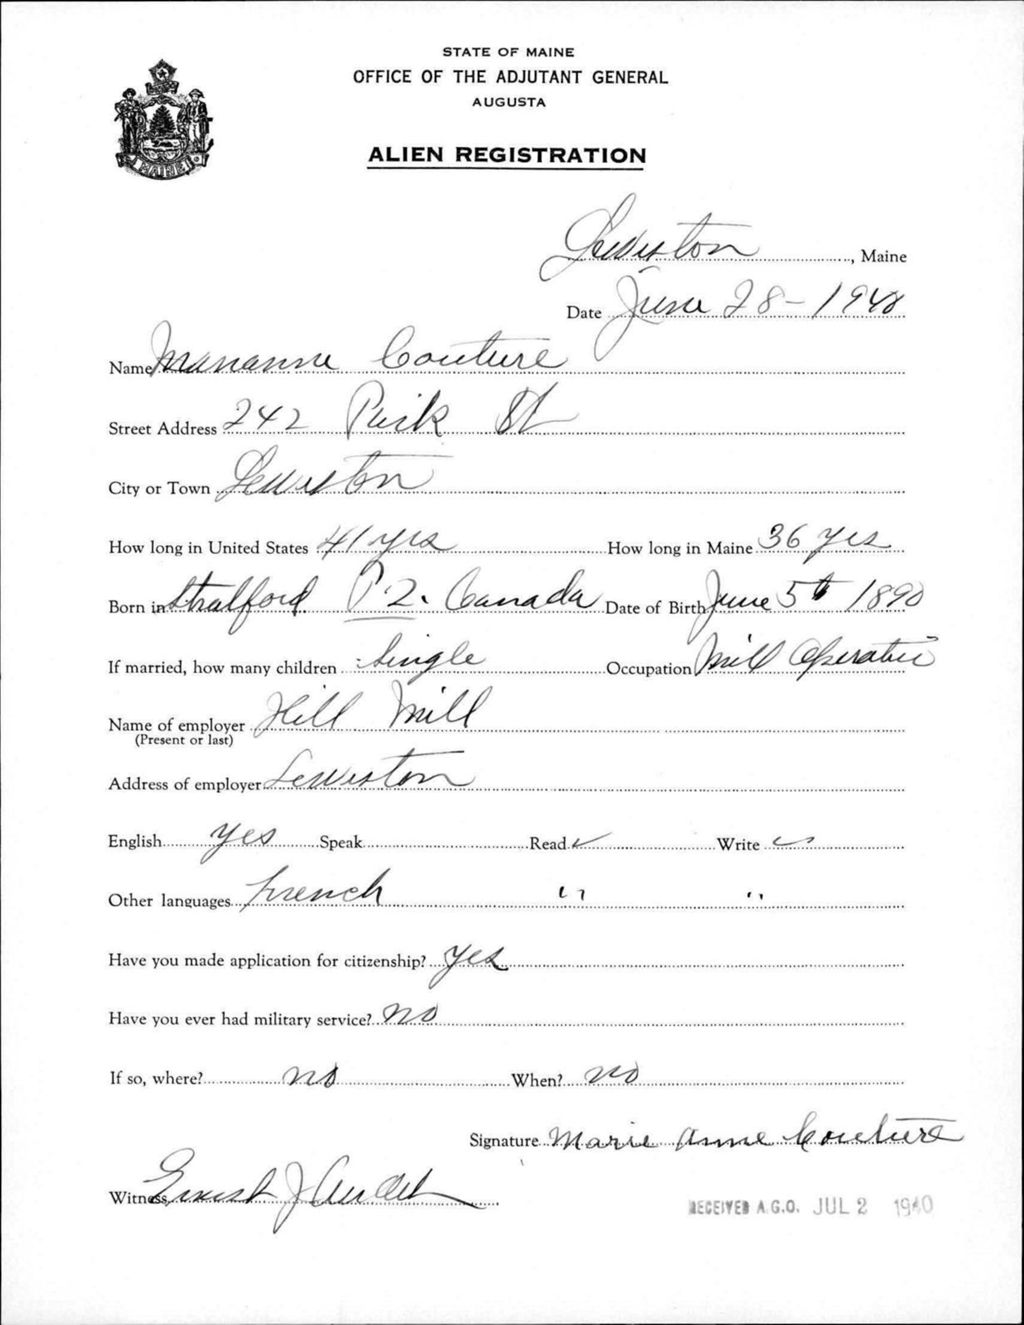 STATE OF MAINE
OFFICE OF THE ADJUTANT GENERAL
AUGUSTA
ALIEN REGISTRATION
MAINE
Lewiston, Maine
Date June 28-1940
Name Marianne Couture
Street Address 242 Park St
City or Town Lewiston
How long in United States 41 yrs How long in Maine 36 yrs
Born in Stratford P2. Canada Date of Birth June 5th 1890
If married, how many children Single Occupation Mill Operative
Name of employer Hill Mill
(Present or last)
Address of employer Lewiston
English yes Speak Read ✓ Write ✓
Other languages French " "
Have you made application for citizenship? Yes
Have you ever had military service? no
If so, where? no When? no
Signature Marie Anne Couture
Witness Ernest J Audet
RECEIVED A.G.O. JUL 2 1940